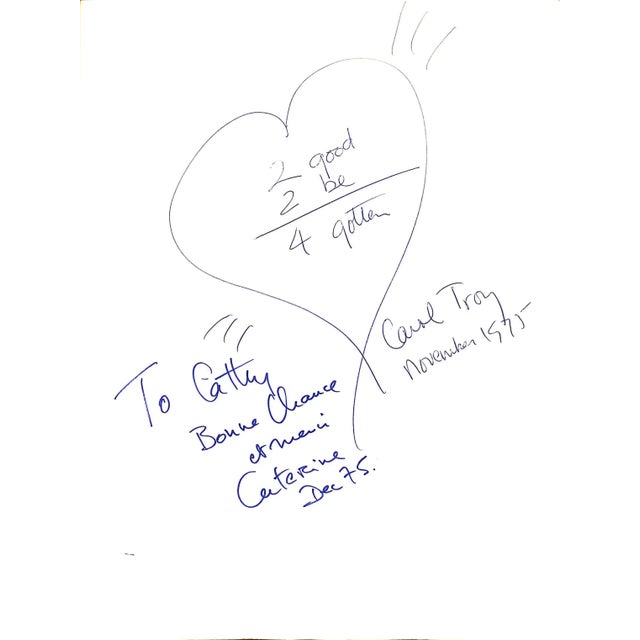 2 good
2 be
4 gotten
Carol Troy
November 1975
To Cathy
Bonne Chance
et merci
Caterine
Dec 75.